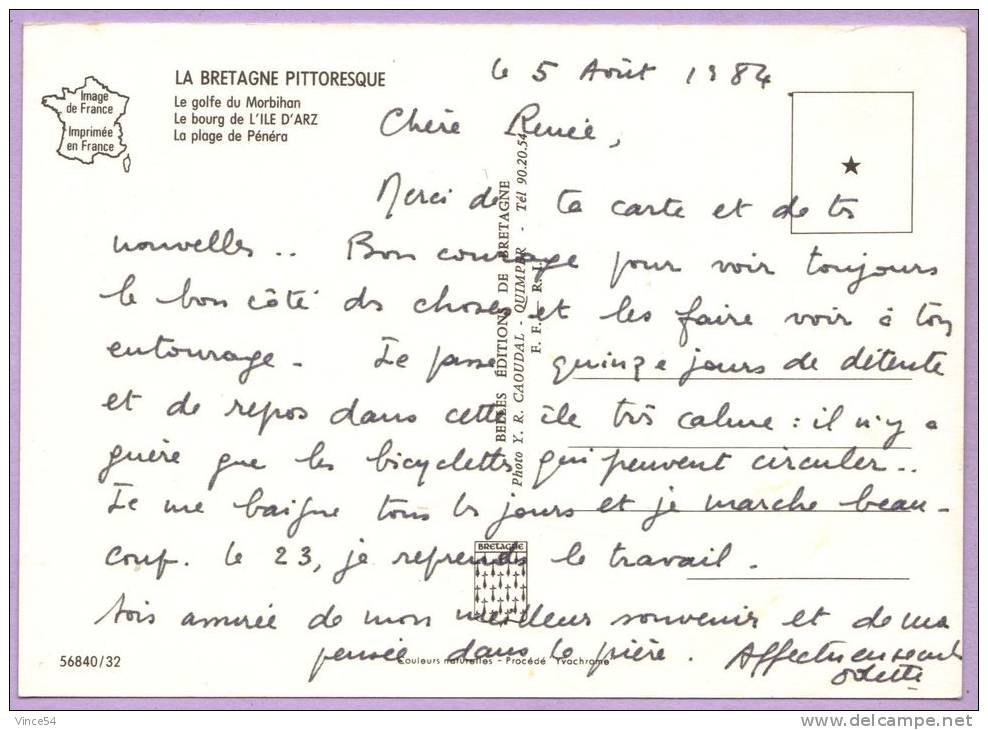 LA BRETAGNE PITTORESQUE
Le golfe du Morbihan
Le bourg de L'ILE D'ARZ
La plage de Pénéra
Image
de France
Imprimée
en France
le 5 Août 1984
Chère Renée,
Merci de ta carte et de tes
nouvelles.. Bon courage pour voir toujours
le bon côté des choses et les faire voir à ton
entourage. Je passe quinze jours de détente
et de repos dans cette île très calme : il n'y a
guère que les bicyclettes qui peuvent circuler..
Je me baigne tous les jours et je marche beau-
coup. Le 23, je reprends le travail.
Sois assurée de mon meilleur souvenir et de ma
pensée dans la prière. Affectueusement
Odette
BELLES ÉDITIONS DE BRETAGNE
Photo Y. R. CAOUDAL - QUIMPER - Tél 90.20.54
BRETAGNE
56840/32
Couleurs naturelles - Procédé Yvachrome
Vince54
delcampe.net